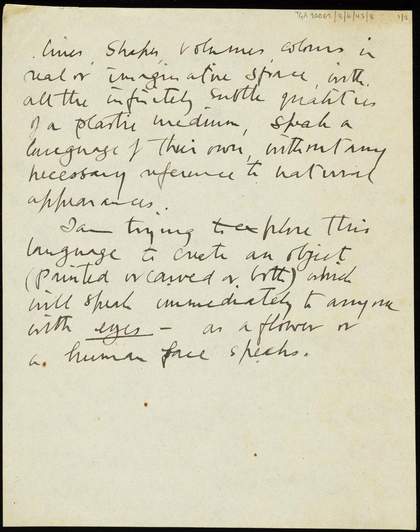 TGA 9082/2/6/43/8 1/2
lines, shapes, volumes, colours in
real or imaginative space, with
all the infinitely subtle qualities
of a plastic medium, speak a
language of their own, without any
necessary reference to natural
appearances.
I am trying to explore this
language to create an object
(painted or carved or both) which
will speak immediately to anyone
with eyes – as a flower or
a human face speaks.